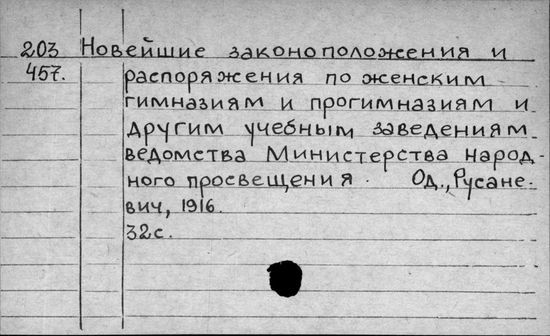 203 Новейшие законоположения и
457. распоряжения по женским
гимназиям и прогимназиям и
другим учебным заведениям
ведомства Министерства народ-
ного просвещения. Од., Русане-
вич, 1916.
32с.